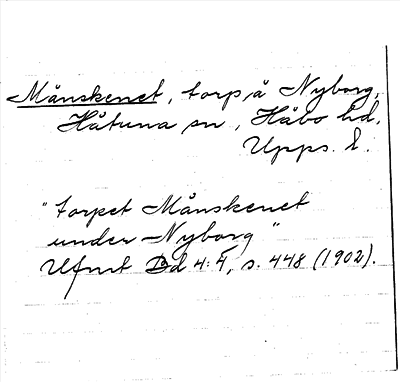 Månskenet, torp å Nyborg,
Håtuna sn, Håbo hd,
Upps. l.
"torpet Månskenet
under Nyborg"
Ufmt Bd 4:4, s. 448 (1902).